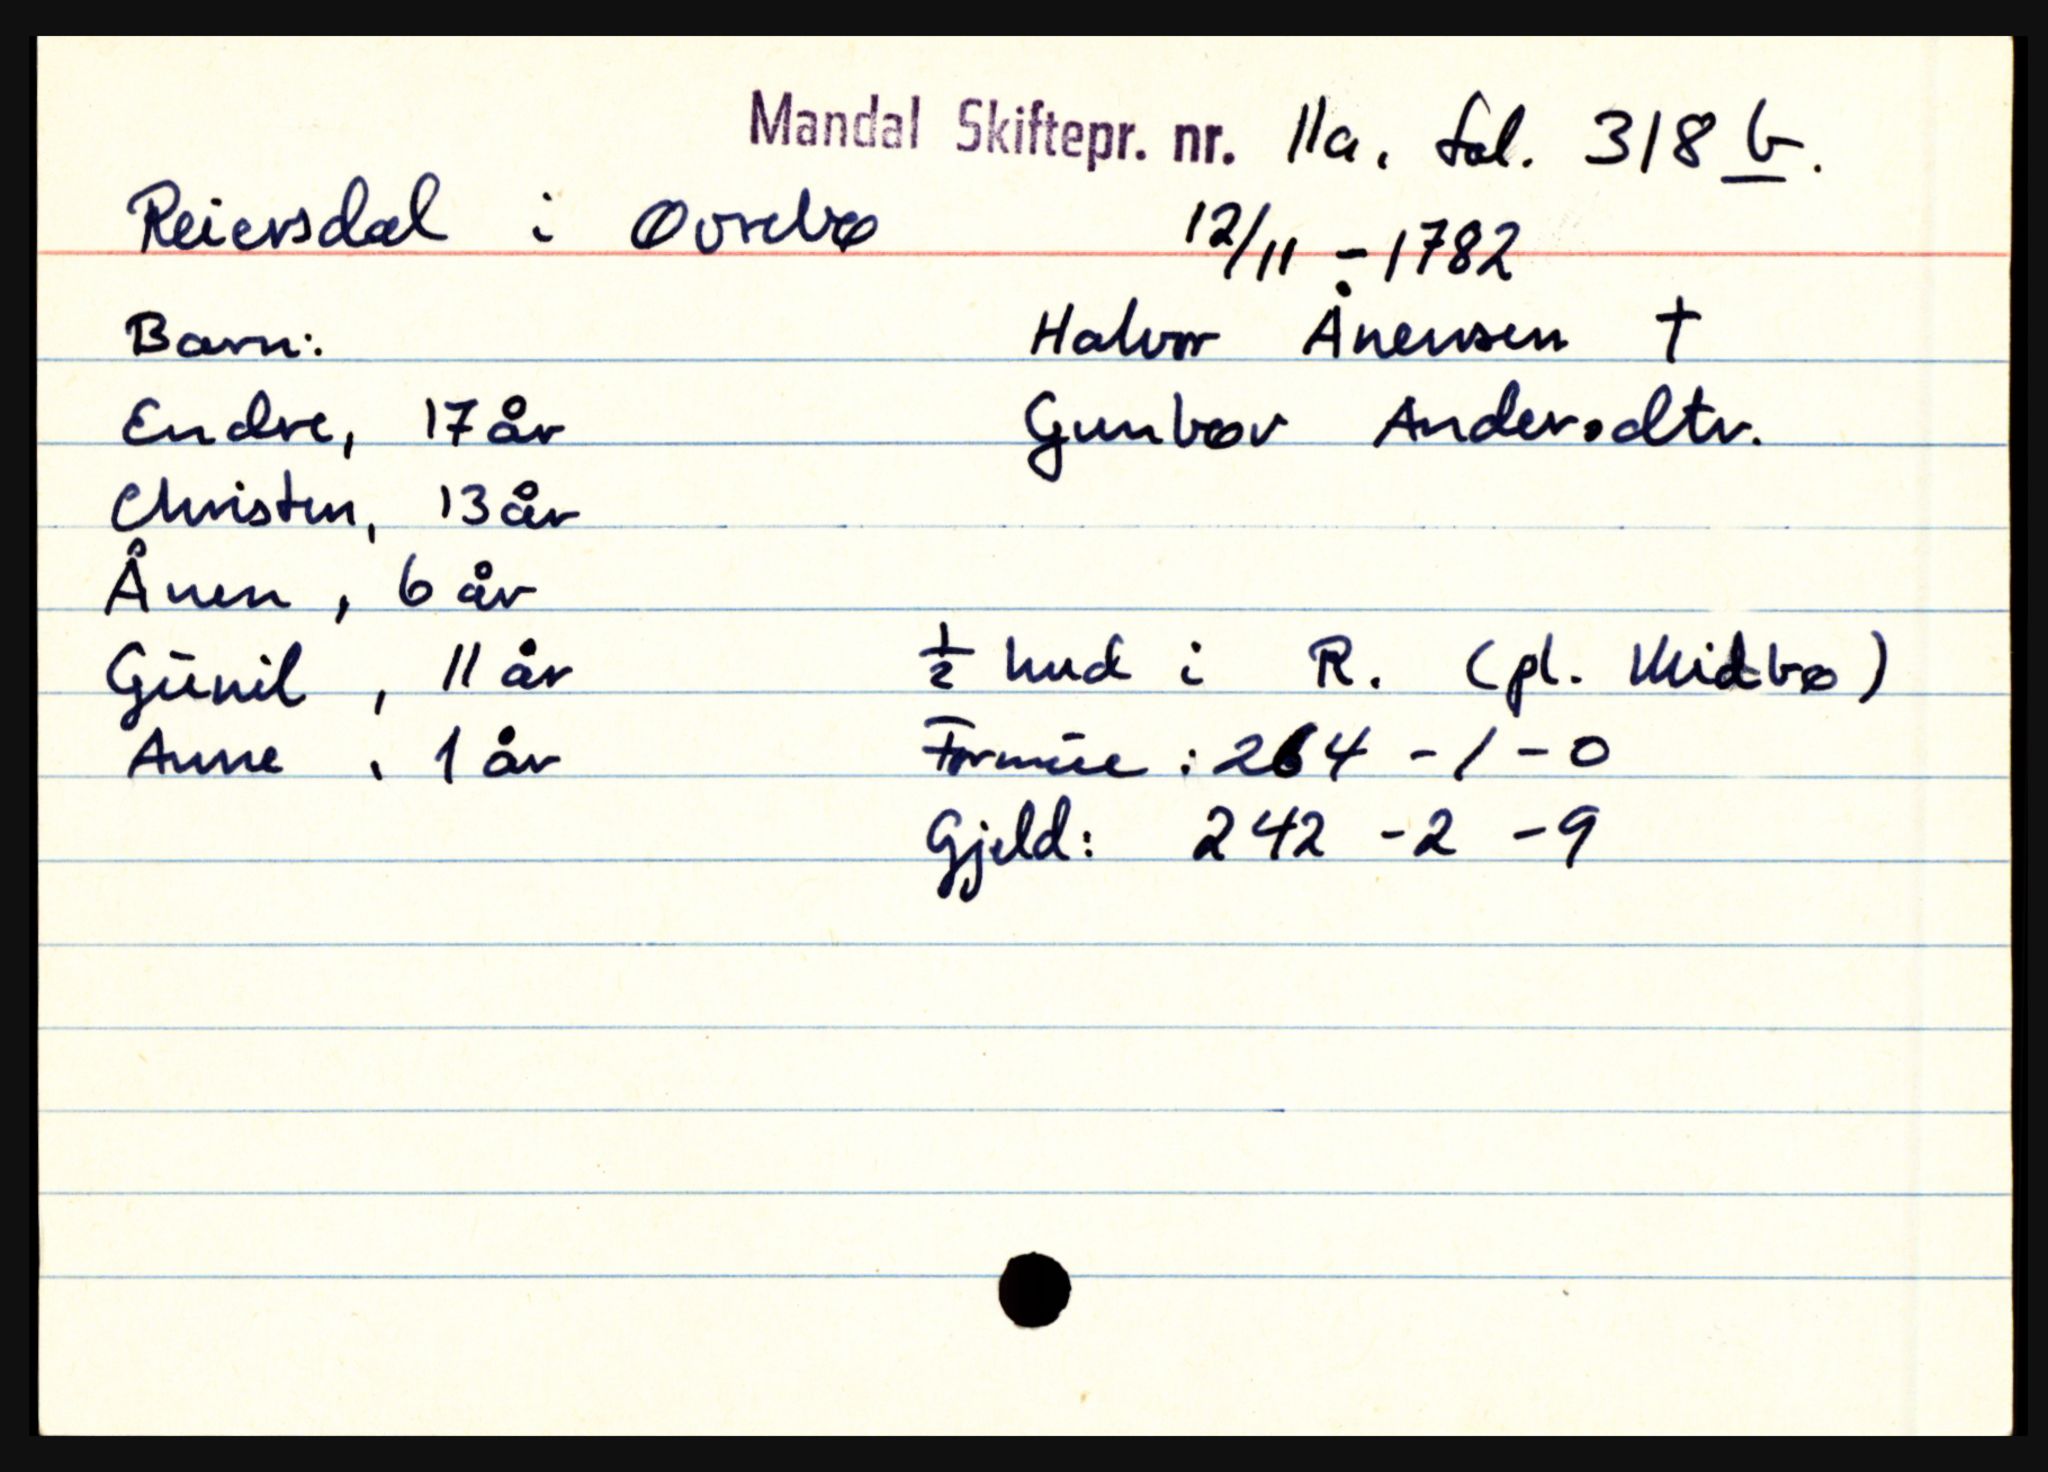 Mandal Skiftepr. nr. 11a, fol. 318 b.
Reiersdal i Øvrebø 12/11 - 1782
Barn: Halvor Ånensen †
Endre, 17 år Gunbør Andersdtr.
Christen, 13 år
Ånen, 6 år
Gunil, 11 år ½ hud i R. (pl. Midbø)
Anne, 1 år Formue: 264 - 1 - 0
Gjeld: 242 - 2 - 9